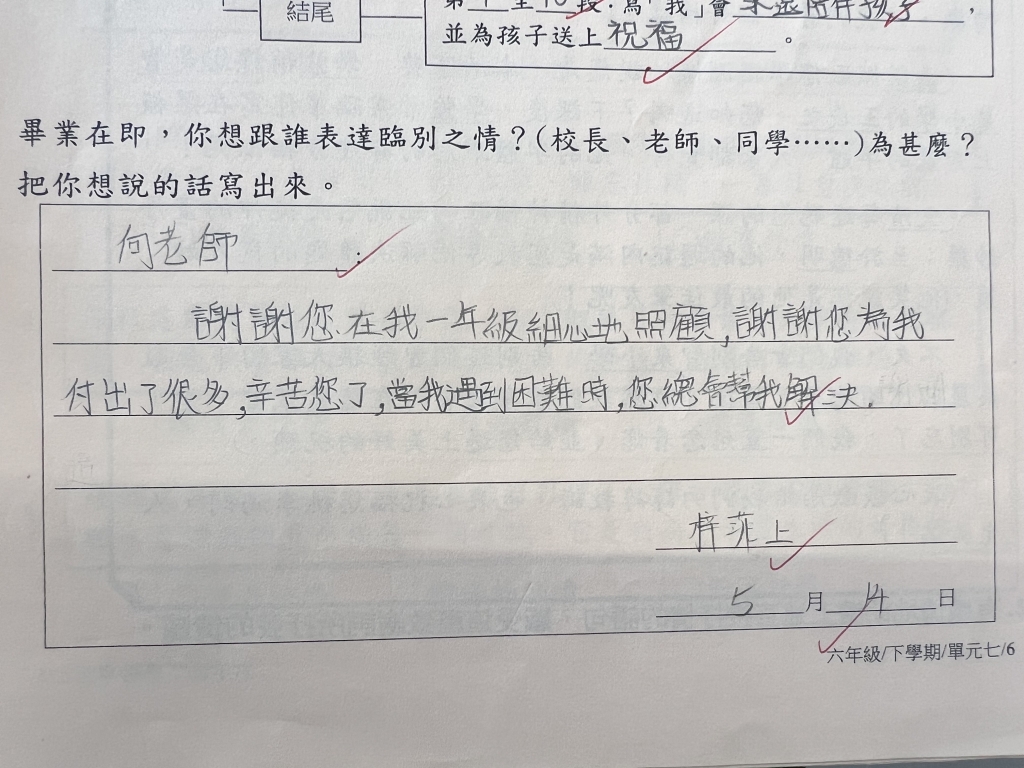 結尾
第4至10段：寫「我」會永遠陪伴孩子，
並為孩子送上祝福。
畢業在即，你想跟誰表達臨別之情？(校長、老師、同學……)為甚麼？
把你想說的話寫出來。
何老師：
謝謝您在我一年級細心地照顧,謝謝您為我
付出了很多,辛苦您了,當我遇到困難時,您總會幫我解決.
梓菲上
5月14日
六年級/下學期/單元七/6